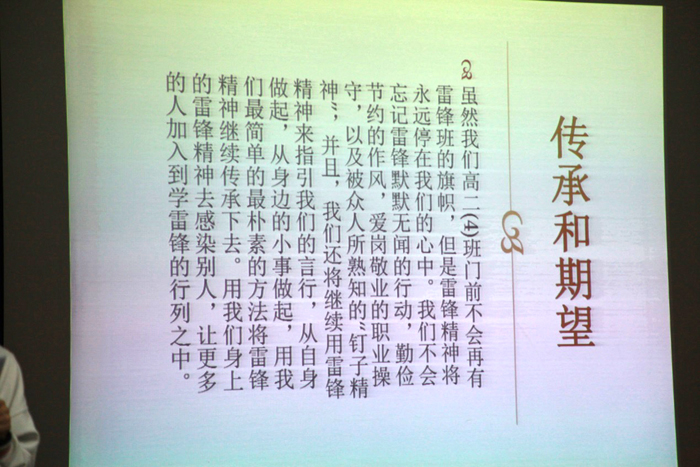 传承和期望
虽然我们高二(4)班门前不会再有
雷锋班的旗帜，但是雷锋精神将
永远停在我们的心中。我们不会
忘记雷锋默默无闻的行动，勤俭
节约的作风，爱岗敬业的职业操
守，以及被众人所熟知的“钉子精
神”，并且，我们还将继续用雷锋
精神来指引我们的言行，从自身
做起，从身边的小事做起，用我
们最简单的最朴素的方法将雷锋
精神继续传承下去。用我们身上
的雷锋精神去感染别人，让更多
的人加入到学雷锋的行列之中。